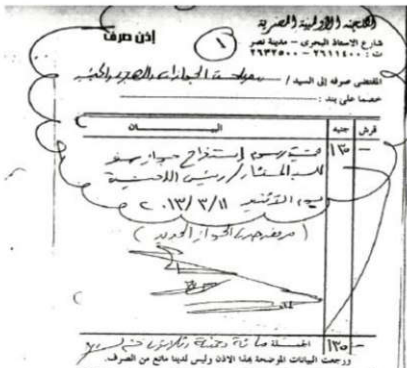 اللجنة الأولمبية المصرية
شارع الاستاد البحرى - مدينة نصر
ت : ٢٦١١٤٠٠ - ٢٦٣٢٥٠٠
إذن صرف
١
المقتضى صرفه إلى السيد / مصلحة الجوازات والهجرة والجنسية
خصما على بند :
قرش جنيه البيــــــان
- ١٣٥ قيمة رسوم إستخراج جواز سفر
للسيد المستشار / رئيس اللجنة
يوم الأثنين ١١/٣/٢٠١٣
( مرفق صورة الجواز الجديد )
- ١٣٥ الجملة مائة وخمسة وثلاثون جنيه
وروجعت البيانات الموضحة بهذا الاذن وليس لدينا مانع من الصرف.